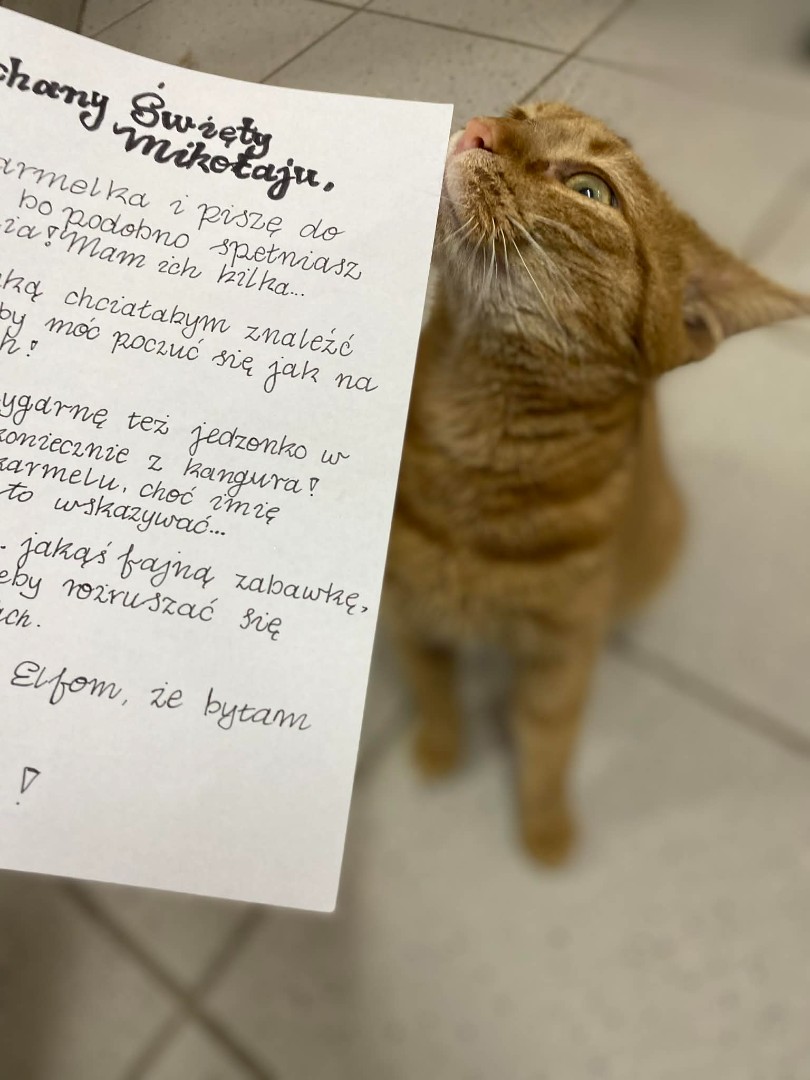 chany Święty
Mikołaju,
armelka i piszę do
bo podobno spełniasz
ia! Mam ich kilka...
ką chciałabym znaleźć
by móc poczuć się jak na
h!
ygarnę też jedzonko w
koniecznie z kangura!
karmelu, choć imię
to wskazywać...
. jakąś fajną zabawkę,
eby rozruszać się
ach.
Elfom, że byłam
!